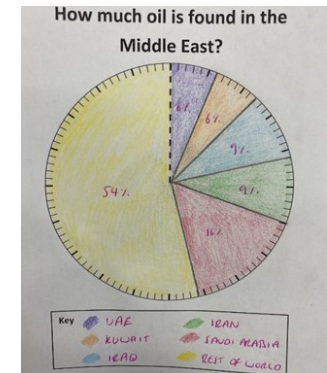 How much oil is found in the
Middle East?
6%
6%
9%
9%
16%
54%
Key
UAE
IRAN
KUWAIT
SAUDI ARABIA
IRAQ
REST OF WORLD